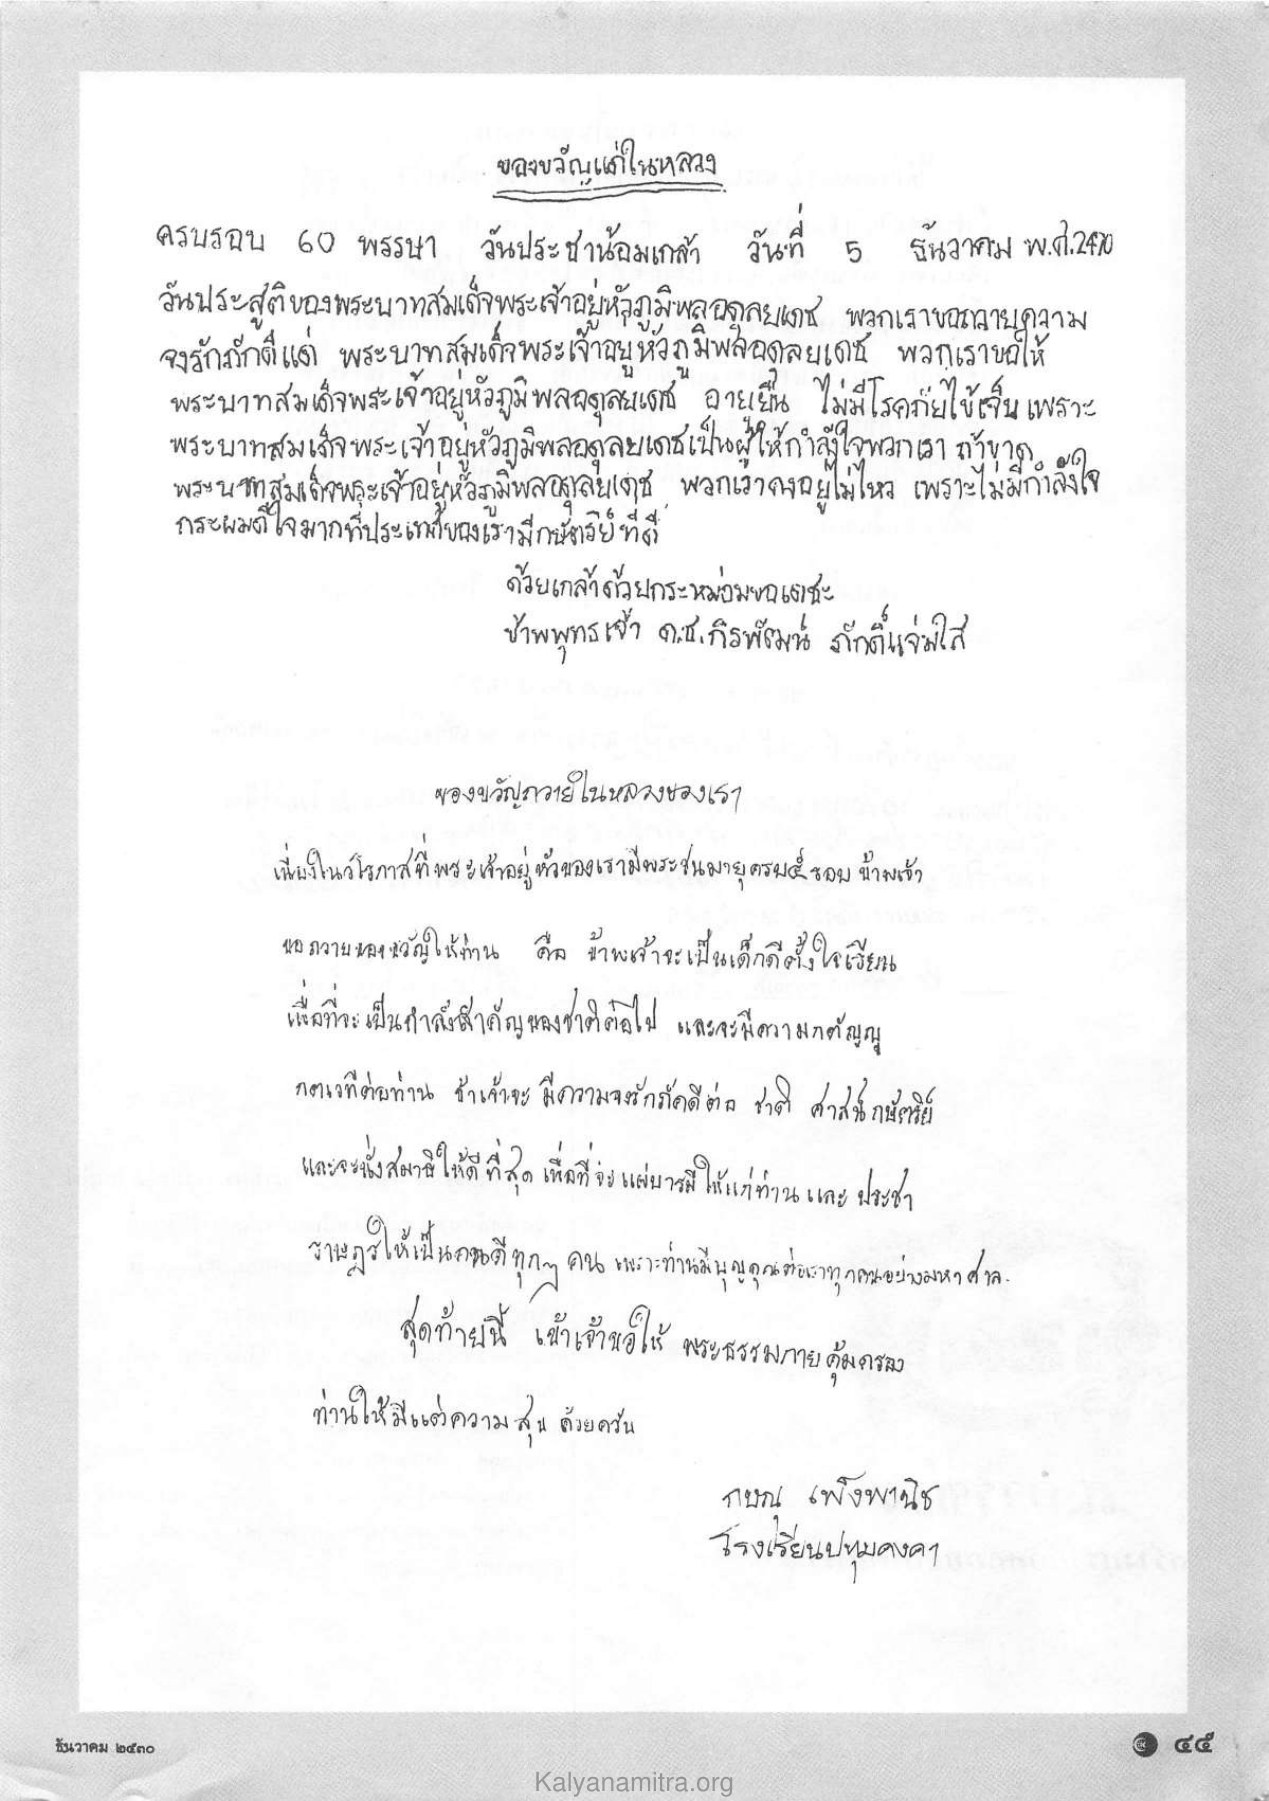 ของขวัญแด่ในหลวง
ครบรอบ 60 พรรษา วันประชาน้อมเกล้า วันที่ 5 ธันวาคม พ.ศ.2470
วันประสูติของพระบาทสมเด็จพระเจ้าอยู่หัวภูมิพลอดุลยเดช พวกเราขอถวายความ
จงรักภักดีแด่ พระบาทสมเด็จพระเจ้าอยู่หัวภูมิพลอดุลยเดช พวกเราขอให้
พระบาทสมเด็จพระเจ้าอยู่หัวภูมิพลอดุลยเดช อายุยืน ไม่มีโรคภัยไข้เจ็บ เพราะ
พระบาทสมเด็จพระเจ้าอยู่หัวภูมิพลอดุลยเดชเป็นผู้ให้กำลังใจพวกเรา ถ้าขาด
พระบาทสมเด็จพระเจ้าอยู่หัวภูมิพลอดุลยเดช พวกเราคงอยู่ไม่ไหว เพราะไม่มีกำลังใจ
กระผมดีใจมากที่ประเทศของเรามีกษัตริย์ที่ดี
ด้วยเกล้าด้วยกระหม่อมขอเดชะ
ข้าพพุทธเจ้า ด.ช.ภิรพัฒน์ ภักดิ์แจ่มใส
ของขวัญถวายในหลวงของเรา
เนื่องในวโรกาสที่พระเจ้าอยู่หัวของเรามีพระชนมายุครบ๕รอบ ข้าพเจ้า
ขอถวายของขวัญให้ท่าน คือ ข้าพเจ้าจะเป็นเด็กดีตั้งใจเรียน
เพื่อที่จะเป็นกำลังสำคัญของชาติต่อไป และจะมีความกตัญญู
กตเวทีต่อท่าน ข้าเจ้าจะ มีความจงรักภักดีต่อ ชาติ ศาสน์ กษัตริย์
และจะนั่งสมาธิให้ดีที่สุด เพื่อที่จะ แผ่บารมีให้แก่ท่าน และ ประชา
ราษฎรให้เป็นคนดีทุกๆ คน เพราะท่านมีบุญคุณต่อเราทุกคนอย่างมหาศาล.
สุดท้ายนี้ เข้าเจ้าขอให้ พระธรรมกายคุ้มครอง
ท่านให้มีแต่ความสุข ด้วยครับ
กษณุ เพ็งพานิช
โรงเรียนปทุมคงคา
ธันวาคม ๒๕๓๐
๔๕
Kalyanamitra.org